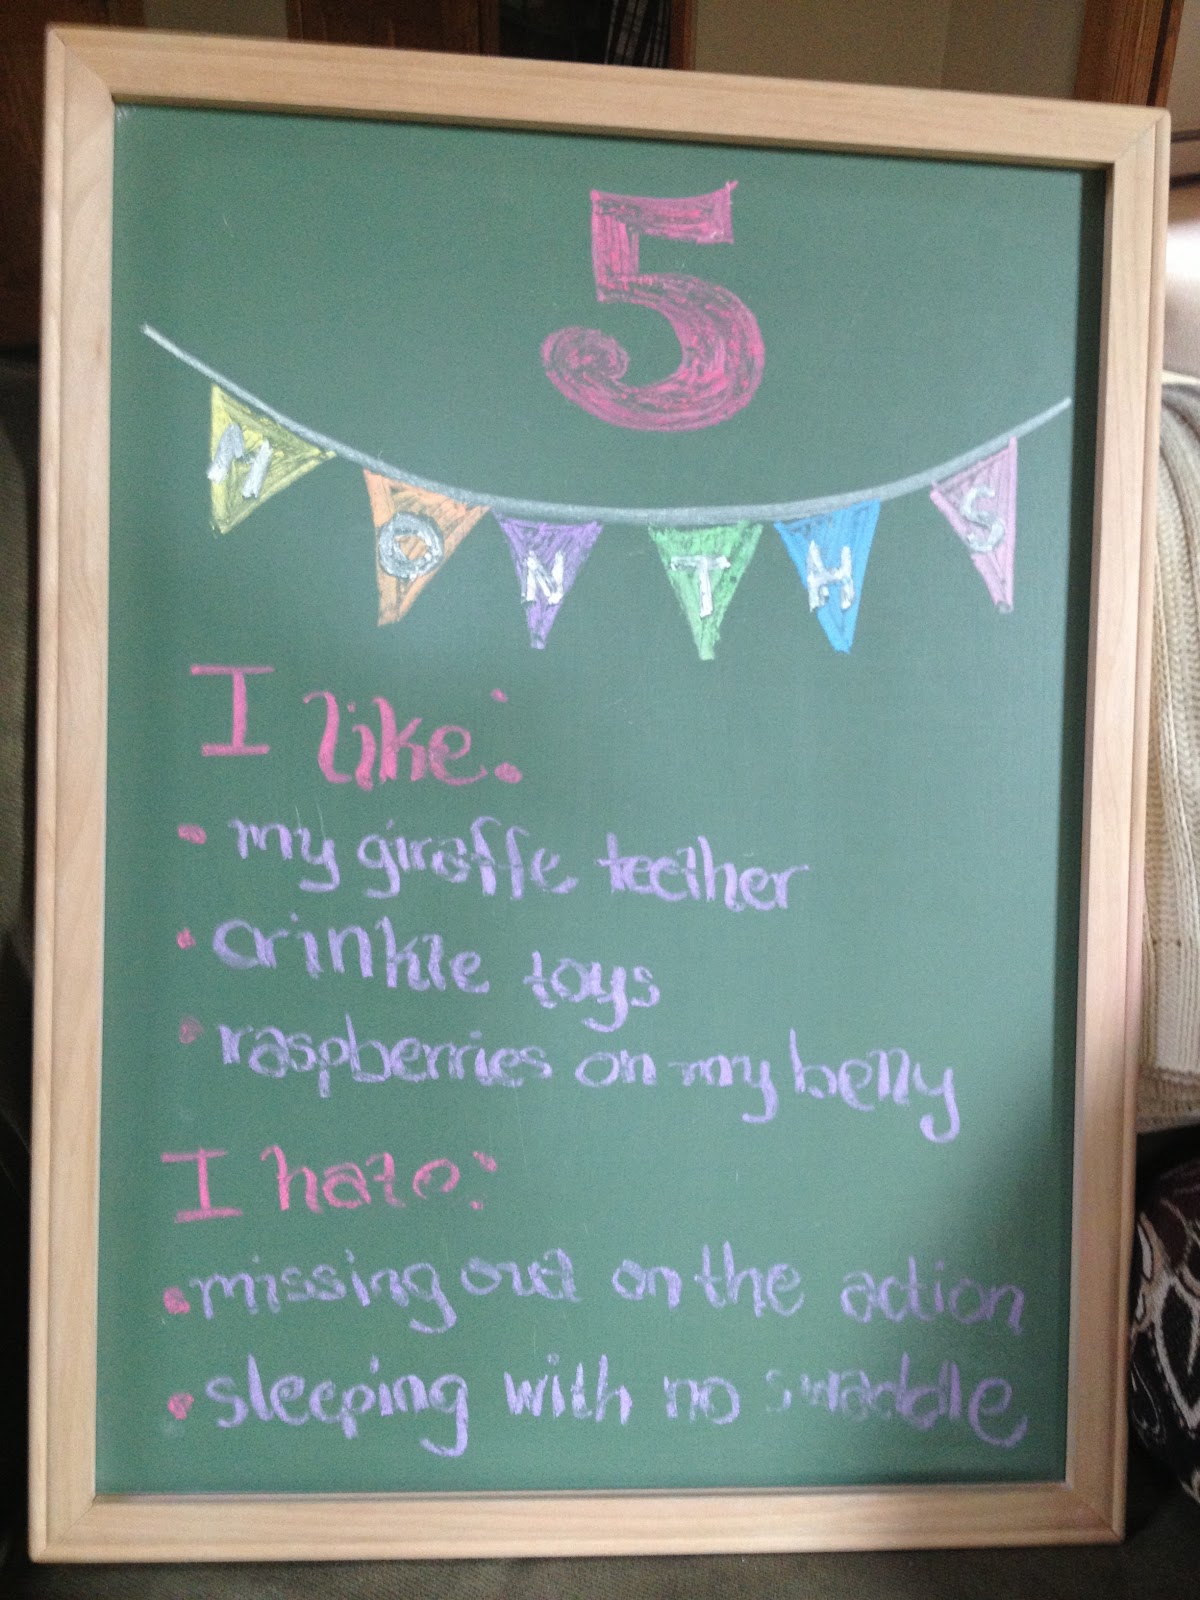 5
MONTHS
I like:
• my giraffe teether
• crinkle toys
• raspberries on my belly
I hate:
• missing out on the action
• sleeping with no swaddle